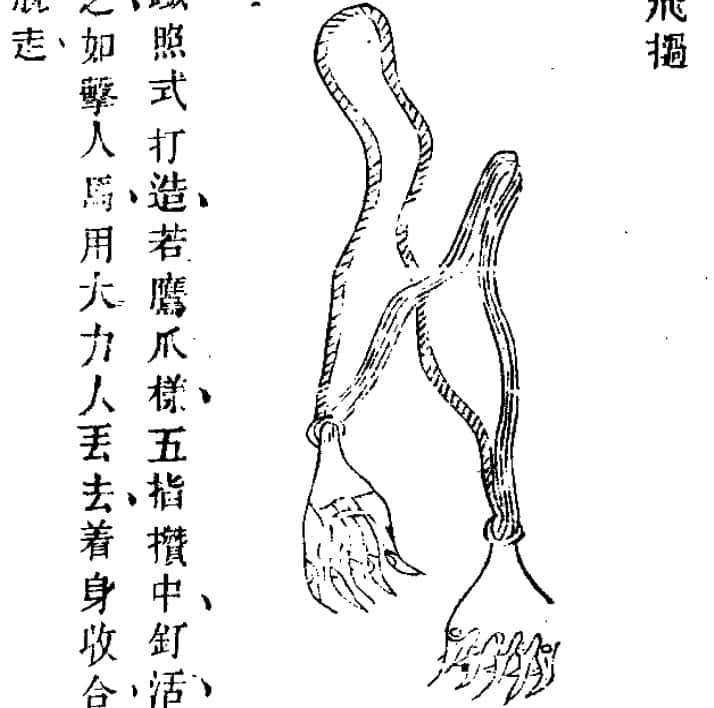 飛撾
鐵照式打造若鷹爪樣五指攢中釘活
之如擊人馬用大力人丟去着身收合
走